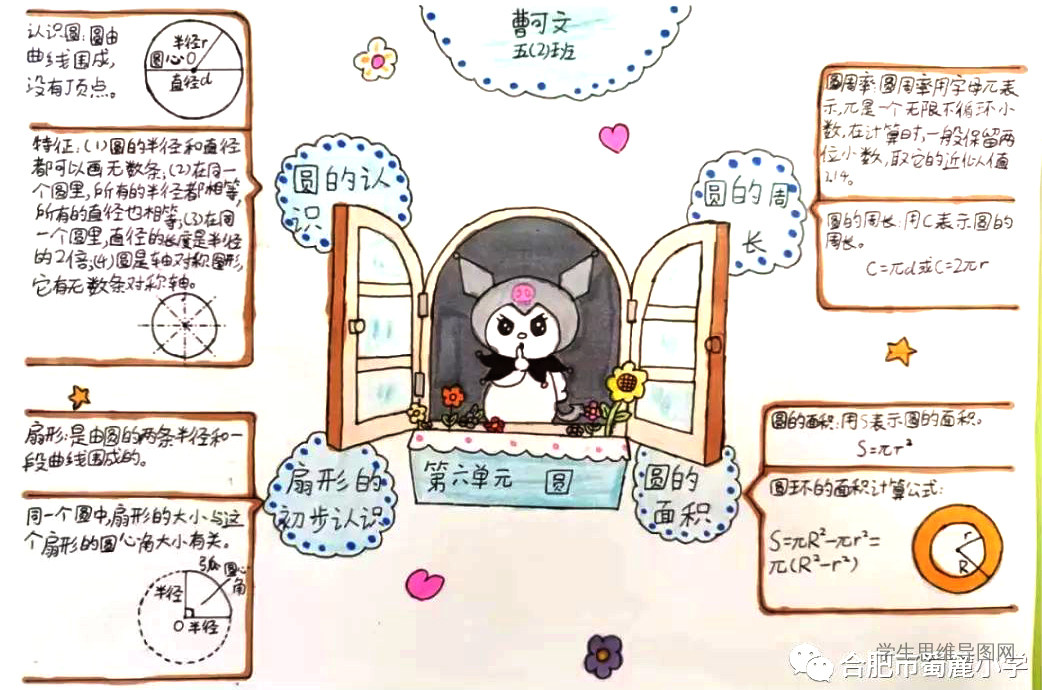 曹可文
五(2)班
认识圆:圆由
曲线围成,
没有顶点。
半径r
圆心O
直径d
特征:(1)圆的半径和直径
都可以画无数条;(2)在同一
个圆里,所有的半径都相等,
所有的直径也相等;(3)在同
一个圆里,直径的长度是半径
的2倍;(4)圆是轴对称图形,
它有无数条对称轴。
圆的认
识
圆的周
长
圆周率:圆周率用字母π表
示,π是一个无限不循环小
数,在计算时,一般保留两
位小数,取它的近似值
3.14。
圆的周长:用C表示圆的
周长。
C=πd或C=2πr
扇形:是由圆的两条半径和一
段曲线围成的。
同一个圆中,扇形的大小与这
个扇形的圆心角大小有关。
弧
圆心
角
半径
O 半径
扇形的
初步认识
第六单元 圆
圆的
面积
圆的面积:用S表示圆的面积。
S=πr²
圆环的面积计算公式:
S=πR²-πr²=
π(R²-r²)
r
R
学生思维导图网
合肥市蜀麓小学